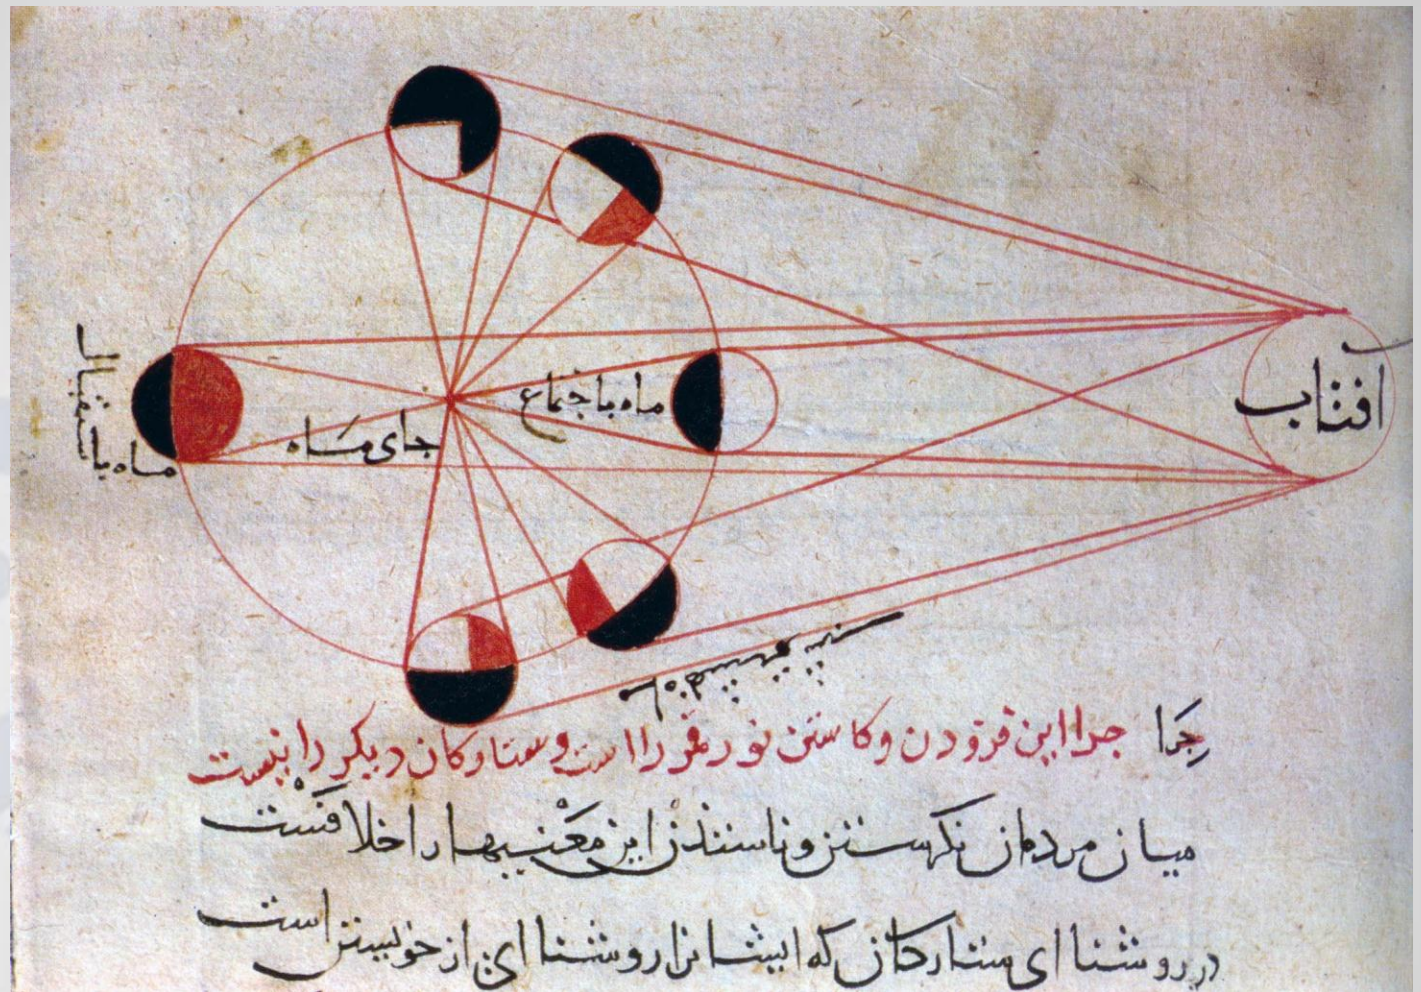 افتاب
ماه باجتماع
جای ماه
ماه باستقبال
چرا این فزودن وکاستن نور قمر را است وستارکان دیکر را نیست
میان مردمان نکرستن این معنیها را خلافست
در روشنا ای ستارکان که ایشانرا روشنا ای از خویشتن است